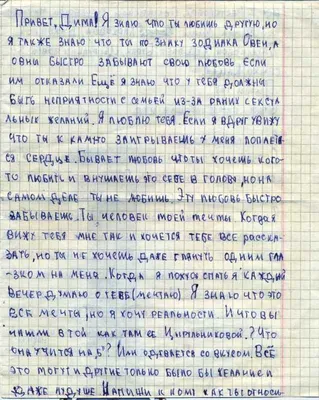 Привет, Дима! Я знаю что ты любишь другую, но
я также знаю что ты по знаку зодиака Овен, а
овны быстро забывают свою любовь если
им отказали Ещё я знаю что у тебя должны
быть неприятности с семьей из-за раних сексуа
льных желаний. Я люблю тебя Если я вдруг увижу
что ты к камно заигрываешь у меня лопаеть
ся сердце. Бывает любовь что ты хочешь кого-
то любить и внушаешь это себе в голову, но на
самом деле ты не любишь. Эту любовь быстро
забываешь. Ты человек моей мечты Когда я
вижу тебя мне так и хочется тебе все расска-
зать, но ты не хочешь даже глянуть одним гла
-зком на меня. Когда я ложусь спать я каждый
вечер думаю о тебе (мечтаю) Я знаю что это
все мечты, но я хочу реальности И что вы
нашли в той как там её Цирульниковой? Что
она учится на 5? Или одевается со вкусом. Всё
это могут и другие только было бы желание и
даже лучше Напиши к кому как ты относи-